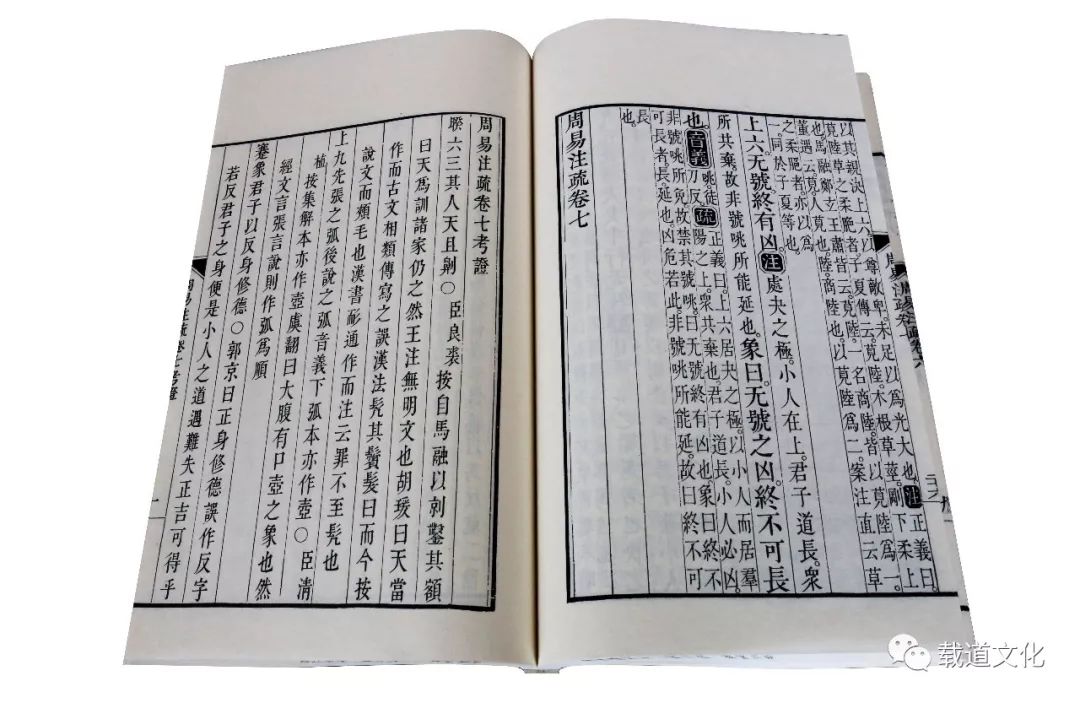 以其親決上六以尊敵卑未足以爲光大也。注正義曰。
莧陸草之柔脆者。子夏傳云。莧陸木根草莖。剛下柔上
也。馬融鄭玄王肅皆云。莧陸一名商陸。皆以莧陸爲一。
董遇云。莧人莧也。陸商陸也。以莧陸爲二。案注直云草
之柔脆者。亦以爲
一。同於子夏等也。
上六。无號終有凶。注處夬之極。小人在上。君子道長。衆
所共棄。故非號咷所能延也。象曰。无號之凶。終不可長
也。音義咷。徒刀反。疏正義曰。上六居夬之極。以小人而居羣
陽之上。衆共棄也。君子道長。小人必凶。
非號咷所免。故禁其號咷。曰无號終有凶也。象曰終不
可長者。長延也。凶危若此。非號咷所能延。故曰終不可
長也。
周易注疏卷七
周易注疏卷七考證
睽六三其人天且劓○臣良裘按自馬融以剠鑿其額
曰天爲訓諸家仍之然王注無明文也胡瑗曰天當
作而古文相類傳寫之誤漢法髡其鬢髮曰而今按
說文而頰毛也漢書耏通作而注云罪不至髡也
上九先張之弧後說之弧音義下弧本亦作壺○臣清
植按集解本亦作壺虞翻曰大腹有口壺之象也然
經文言張言說則作弧爲順
蹇象君子以反身修德○郭京曰正身修德誤作反字
若反君子之身便是小人之道遇難失正吉可得乎
周易注疏卷七考證
载道文化